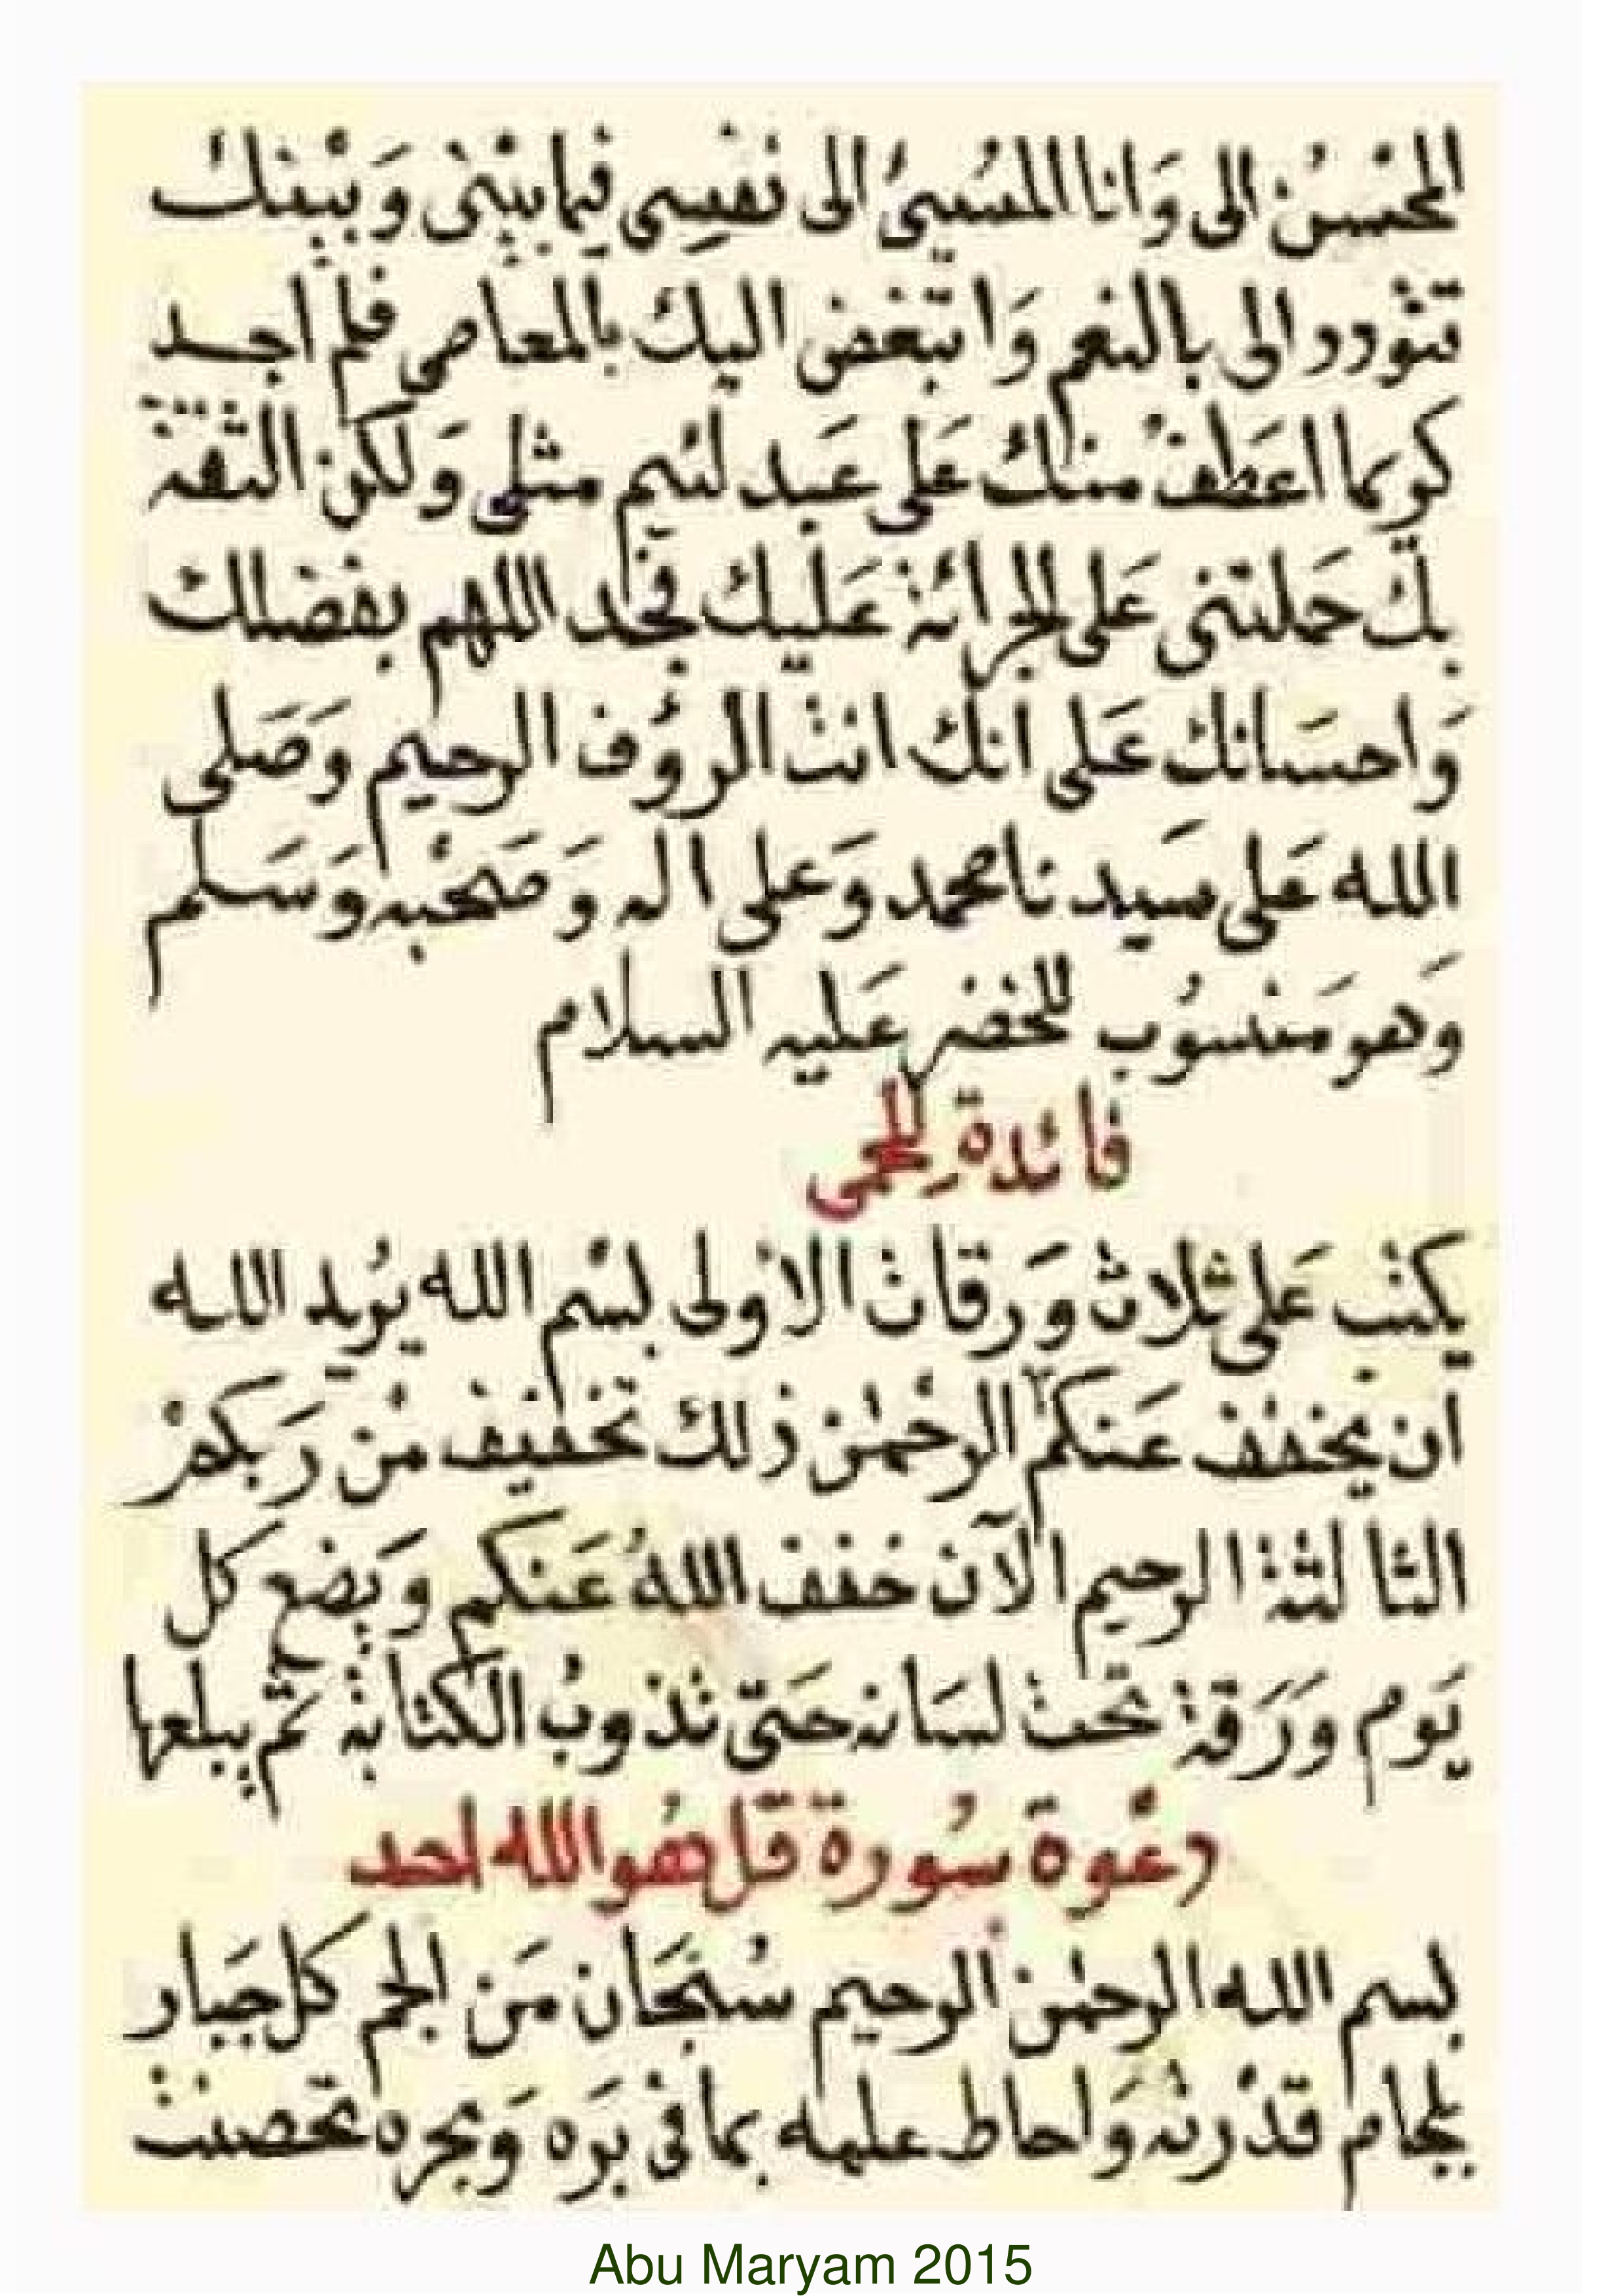 المحْسنُ الى وَانا المُسيئُ الى نفْسِى فيما بيْنى وَبيْنك
تتودد الى بالنعم وَاتبغض اليك بالمعاصى فلم اجد
كريما اعَطفْ منك عَلى عَبد لئيم مثلى وَلكن الثقة
بك حَملتنى عَلى الجرائة عَليك فجد اللهم بفضلك
وَاحسَانك عَلى انك انت الرؤف الرحيم وَصَلى
الله عَلى سَيدنا محمد وَعَلى اله وَصَحْبه وَسَلم
وَهو مَنْسوُب للخضر عَليه السلام
فائدة لِلحمى
يكتب عَلى ثلاث وَرقات الاولى بسْم الله يُريد الله
ان يخفف عَنكم ٢ الرحْمٰن ذلك تخفيف مْن رَبكمْ
الثالثة الرحيم الآن خفف اللهُ عَنكم وَيضع كل
يَوم وَرَقة تحت لسَانه حَتى تذوبُ الكتابة ثم يبلعها
دعْوة سُورة قل هُو الله احد
بسم الله الرحمٰن الرحيم سُبْحَان مَن الجم كل جبَار
بلجام قدْرته وَاحاط علمه بما فى بَره وَبحره تحصنت
Abu Maryam 2015